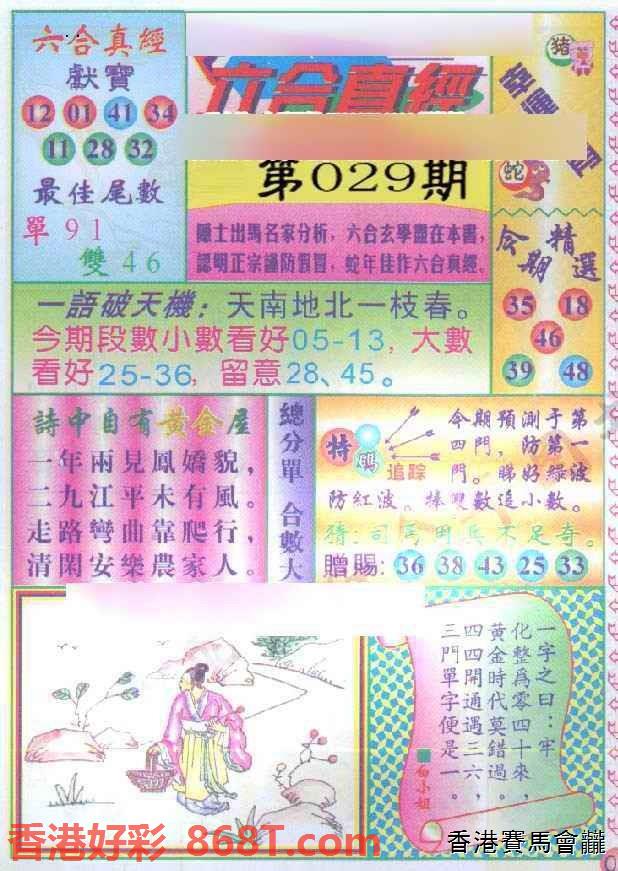 六合真經
獻寶
12 01 41 34
11 28 32
最佳尾數
單91
雙46
六合真經
第029期
隱士出馬名家分析,六合玄學盡在本書,
認明正宗謹防假冒,蛇年佳作六合真經.
豬
蛇
今期精選
35 18
46
39 48
一語破天機:天南地北一枝春。
今期段數小數看好05-13,大數
看好25-36,留意28、45。
詩中自有黃金屋
一年兩見鳳嬌貌,
二九江平未有風。
走路彎曲靠爬行,
清閑安樂農家人。
總分單 合數大
特碼
追踪
今期預測于第
四門,防第一
門。睇好綠波
防紅波。捧雙數追小數。
猜:司馬用兵不足奇。
贈賜: 36 38 43 25 33
一字之曰:牢
化整爲零四十來,
黃金時代莫錯過,
四四開通遇三六,
三門單字便是一。
白小姐
香港好彩 868T.com
香港賽馬會